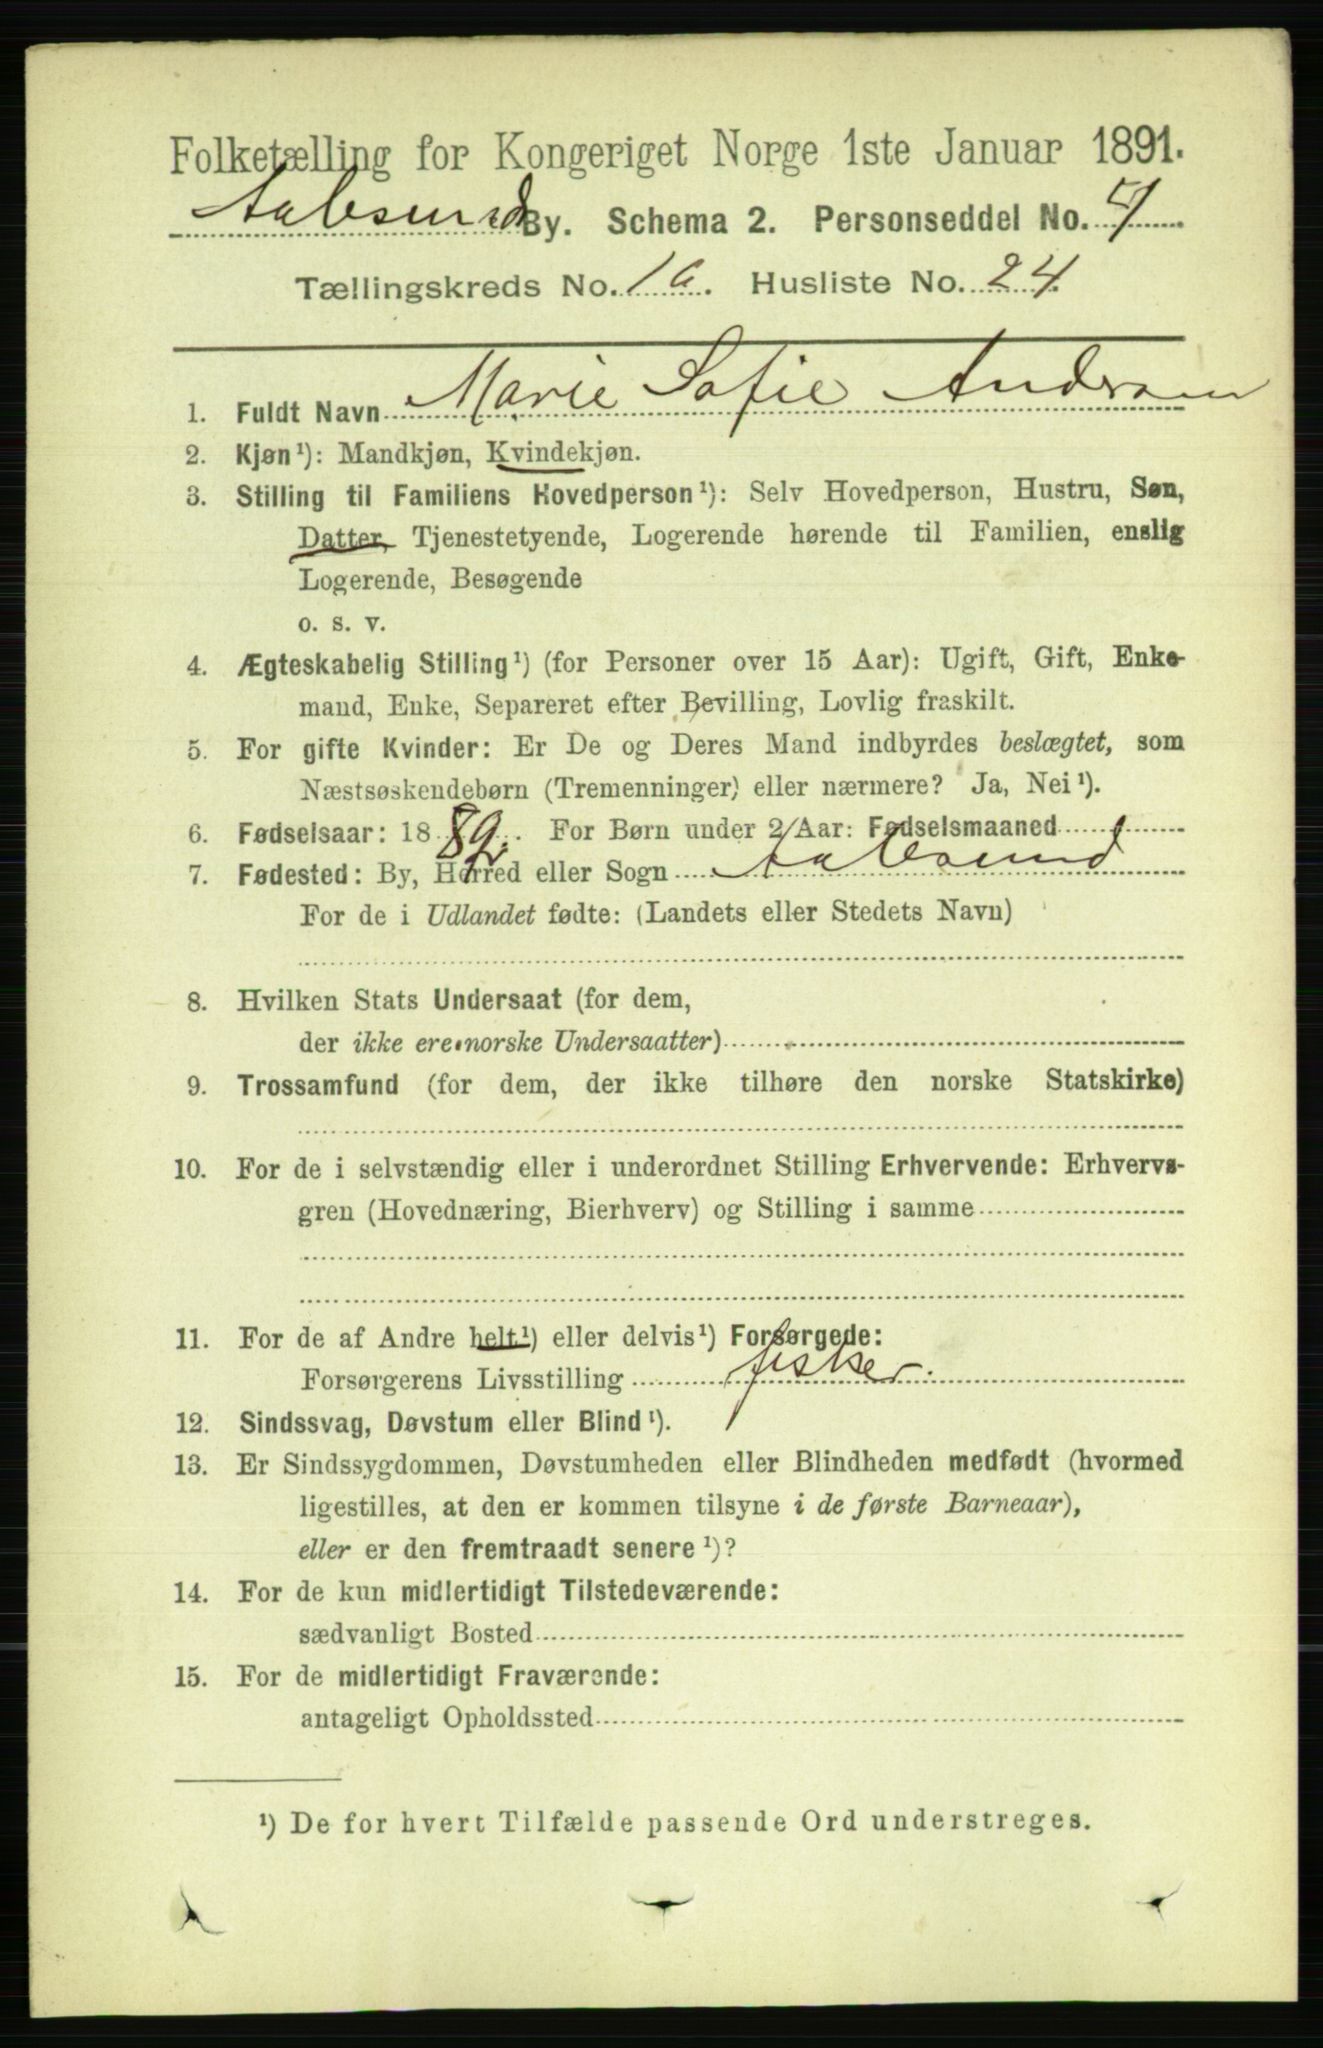 Folketælling for Kongeriget Norge 1ste Januar 1891.
Aalesund By. Schema 2. Personseddel No.
Tællingskreds No. Husliste No. 24
1. Fuldt Navn Marie Sofie Andersen
2. Kjøn¹): Mandkjøn, Kvindekjøn.
3. Stilling til Familiens Hovedperson¹): Selv Hovedperson, Hustru, Søn,
Datter, Tjenestetyende, Logerende hørende til Familien, enslig
Logerende, Besøgende
o. s. v.
4. Ægteskabelig Stilling¹) (for Personer over 15 Aar): Ugift, Gift, Enke-
mand, Enke, Separeret efter Bevilling, Lovlig fraskilt.
5. For gifte Kvinder: Er De og Deres Mand indbyrdes beslægtet, som
Næstsøskendebørn (Tremenninger) eller nærmere? Ja, Nei¹).
6. Fødselsaar: 18 For Børn under 2 Aar: Fødselsmaaned
7. Fødested: By, Herred eller Sogn Aalesund
For de i Udlandet fødte: (Landets eller Stedets Navn)
8. Hvilken Stats Undersaat (for dem,
der ikke ere norske Undersaatter)
9. Trossamfund (for dem, der ikke tilhøre den norske Statskirke)
10. For de i selvstændig eller i underordnet Stilling Erhvervende: Erhvervs-
gren (Hovednæring, Bierhverv) og Stilling i samme
11. For de af Andre helt¹) eller delvis¹) Forsørgede:
Forsørgerens Livsstilling fisker.
12. Sindssvag, Døvstum eller Blind¹).
13. Er Sindssygdommen, Døvstumheden eller Blindheden medfødt (hvormed
ligestilles, at den er kommen tilsyne i de første Barneaar),
eller er den fremtraadt senere¹)?
14. For de kun midlertidigt Tilstedeværende:
sædvanligt Bosted
15. For de midlertidigt Fraværende:
antageligt Opholdssted
¹) De for hvert Tilfælde passende Ord understreges.